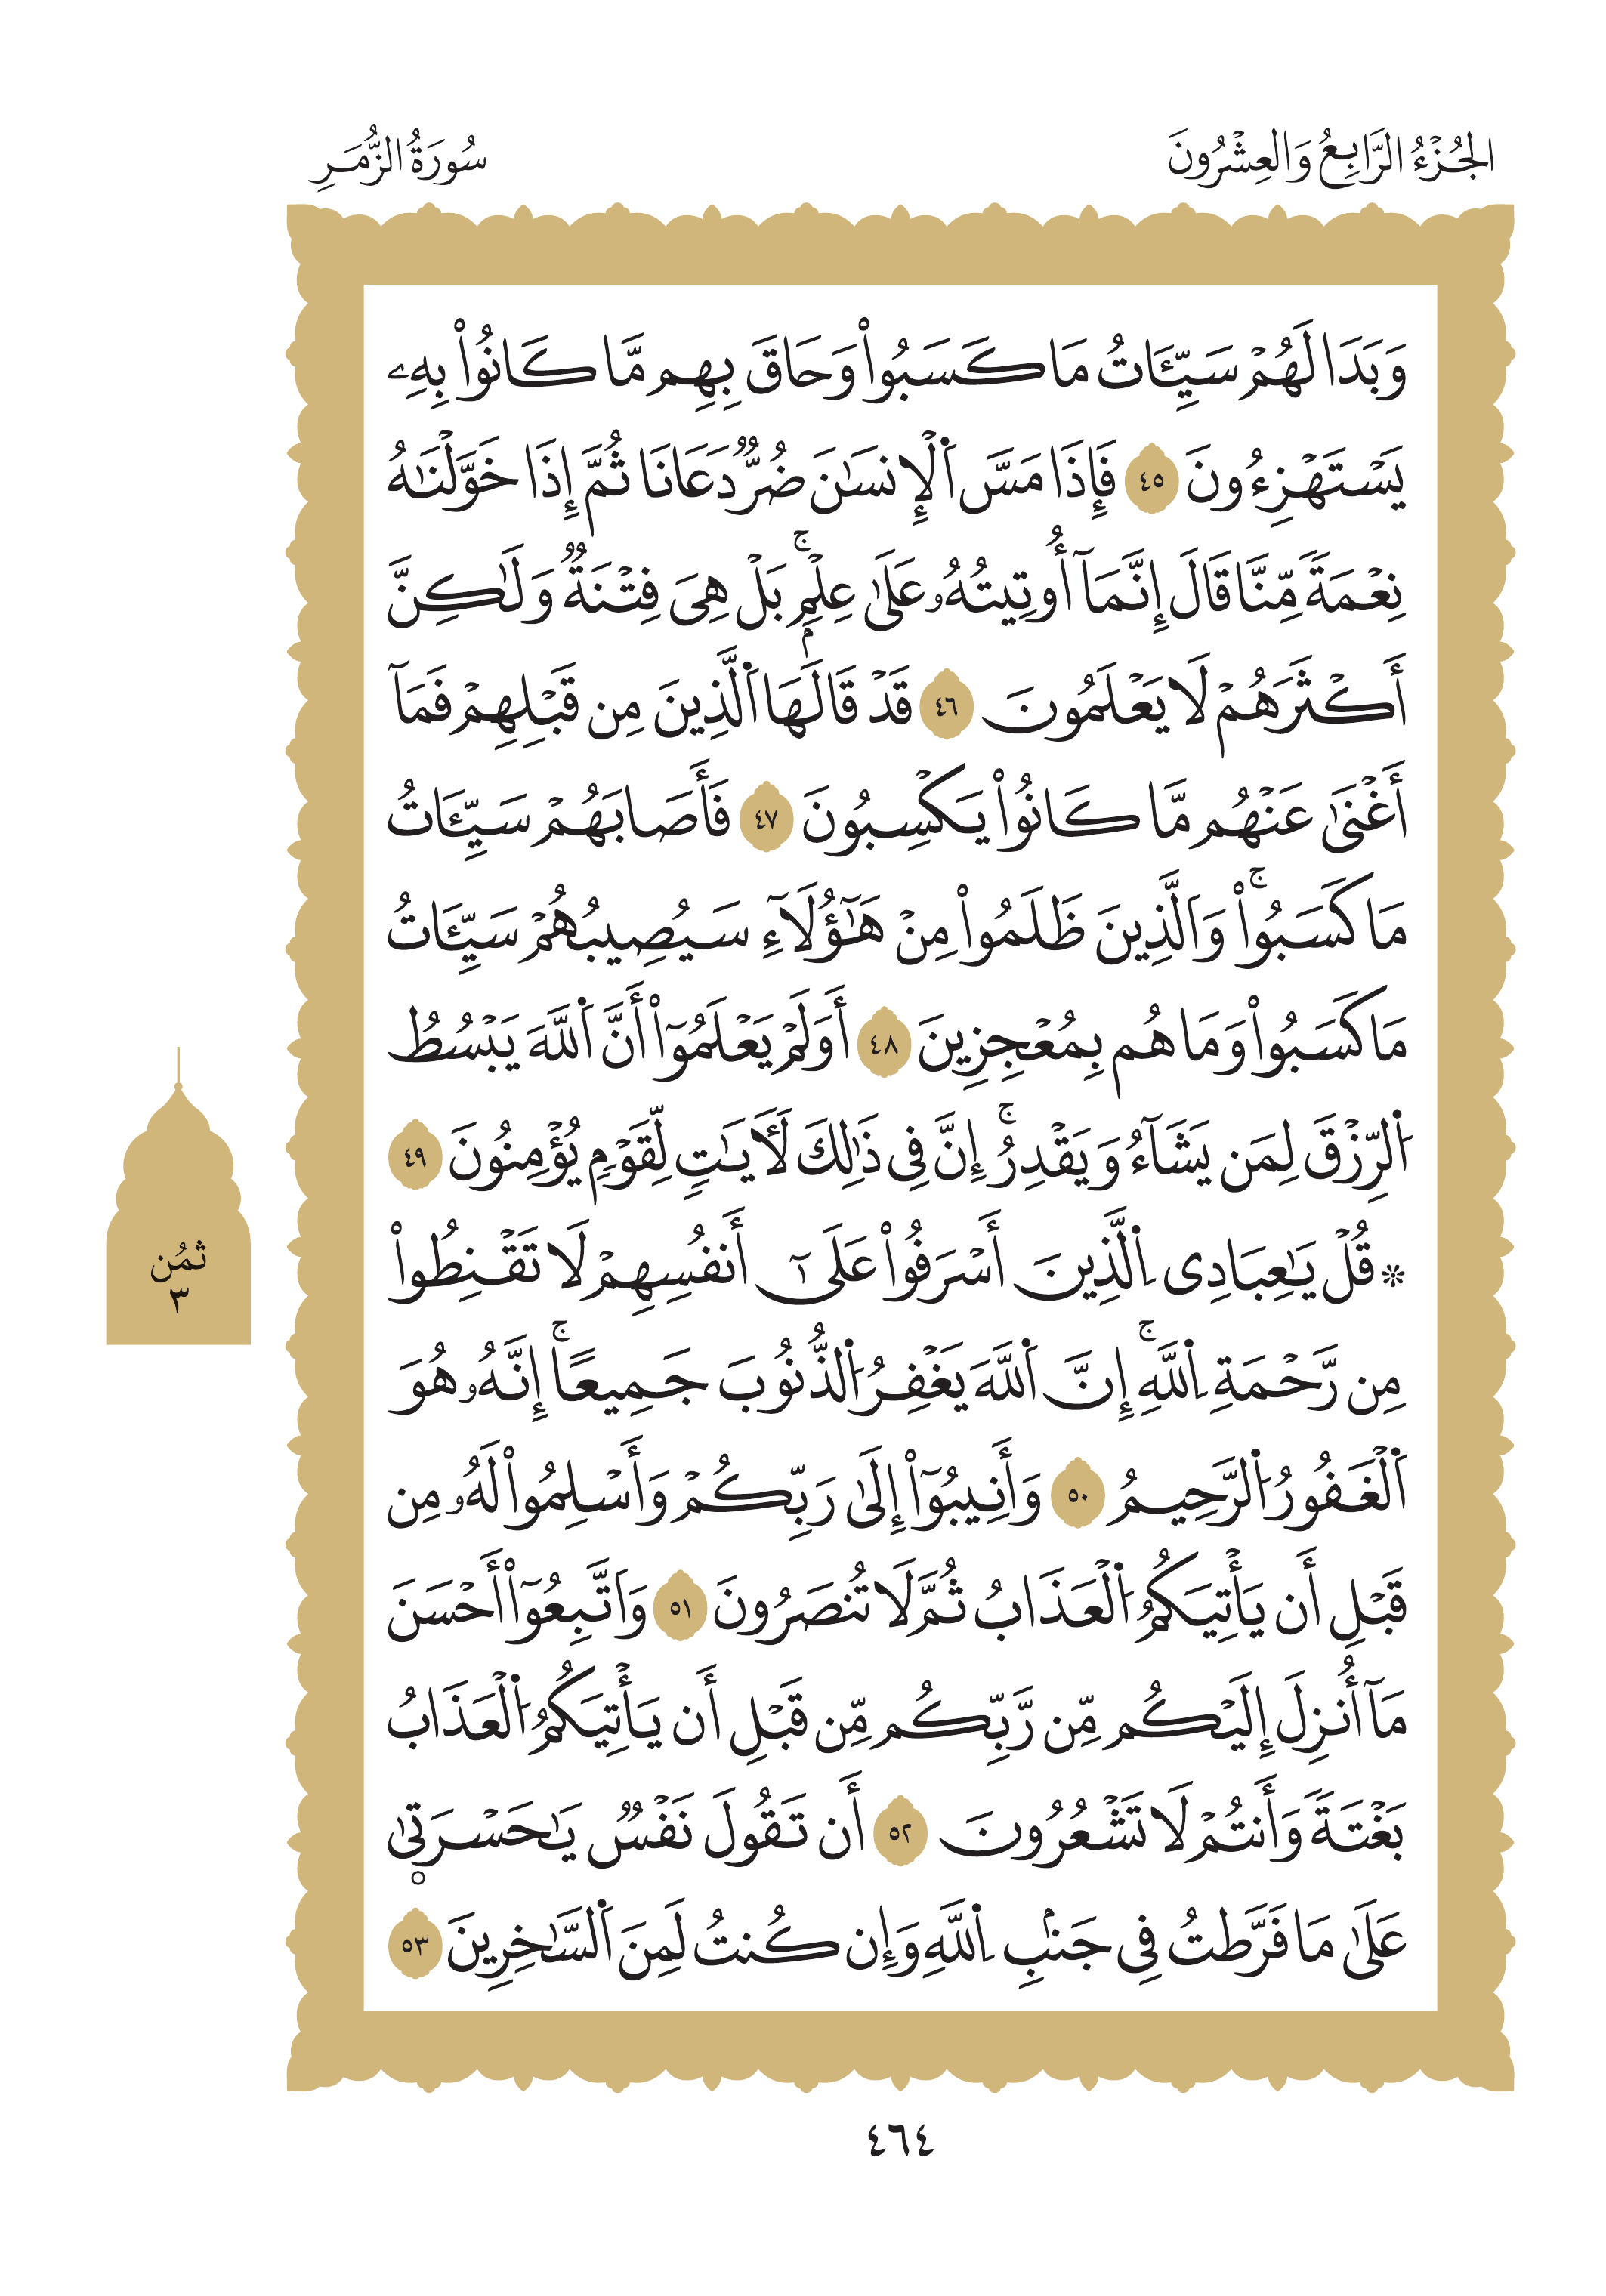 الجُزْءُ الرَّابِعُ وَالعِشْرُونَ
سُورَةُ الزُّمَرِ
وَبَدَا لَهُمْ سَيِّـَٔاتُ مَا كَسَبُواْ وَحَاقَ بِهِم مَّا كَانُواْ بِهِۦ
يَسْتَهْزِءُونَ ٤٥ فَإِذَا مَسَّ اَ۬لْإِنسَٰنَ ضُرّٞ دَعَانَا ثُمَّ إِذَا خَوَّلْنَٰهُ
نِعْمَةٗ مِّنَّا قَالَ إِنَّمَآ أُوتِيتُهُۥ عَلَىٰ عِلْمِۢۚ بَلْ هِيَ فِتْنَةٞ وَلَٰكِنَّ
أَكْثَرَهُمْ لَا يَعْلَمُونَ ٤٦ قَدْ قَالَهَا اَ۬لَّذِينَ مِن قَبْلِهِمْ فَمَآ
أَغْنَىٰ عَنْهُم مَّا كَانُواْ يَكْسِبُونَ ٤٧ فَأَصَابَهُمْ سَيِّـَٔاتُ
مَا كَسَبُواْۚ وَاَلَّذِينَ ظَلَمُواْ مِنْ هَٰٓؤُلَآءِ سَيُصِيبُهُمْ سَيِّـَٔاتُ
مَا كَسَبُواْ وَمَا هُم بِمُعْجِزِينَ ٤٨ أَوَلَمْ يَعْلَمُوٓاْ أَنَّ اَ۬للَّهَ يَبْسُطُ
اُ۬لرِّزْقَ لِمَن يَشَآءُ وَيَقْدِرُۚ إِنَّ فِي ذَٰلِكَ لَأٓيَٰتٖ لِّقَوْمٖ يُؤْمِنُونَ ٤٩
۞ قُلْ يَٰعِبَادِي اِ۬لَّذِينَ أَسْرَفُواْ عَلَىٰٓ أَنفُسِهِمْ لَا تَقْنِطُواْ
مِن رَّحْمَةِ اِ۬للَّهِۚ إِنَّ اَ۬للَّهَ يَغْفِرُ اُ۬لذُّنُوبَ جَمِيعًاۚ إِنَّهُۥ هُوَ
اَ۬لْغَفُورُ اُ۬لرَّحِيمُ ٥٠ وَأَنِيبُوٓاْ إِلَىٰ رَبِّكُمْ وَأَسْلِمُواْ لَهُۥ مِن
قَبْلِ أَن يَأْتِيَكُمُ اُ۬لْعَذَابُ ثُمَّ لَا تُنصَرُونَ ٥١ وَاَتَّبِعُوٓاْ أَحْسَنَ
مَآ أُنزِلَ إِلَيْكُم مِّن رَّبِّكُم مِّن قَبْلِ أَن يَأْتِيَكُمُ اُ۬لْعَذَابُ
بَغْتَةٗ وَأَنتُمْ لَا تَشْعُرُونَ ٥٢ أَن تَقُولَ نَفْسٞ يَٰحَسْرَتىٰ
عَلَىٰ مَا فَرَّطتُ فِي جَنۢبِ اِ۬للَّهِ وَإِن كُنتُ لَمِنَ اَ۬لسَّٰخِرِينَ ٥٣
ثمُن
٣
٤٦٤